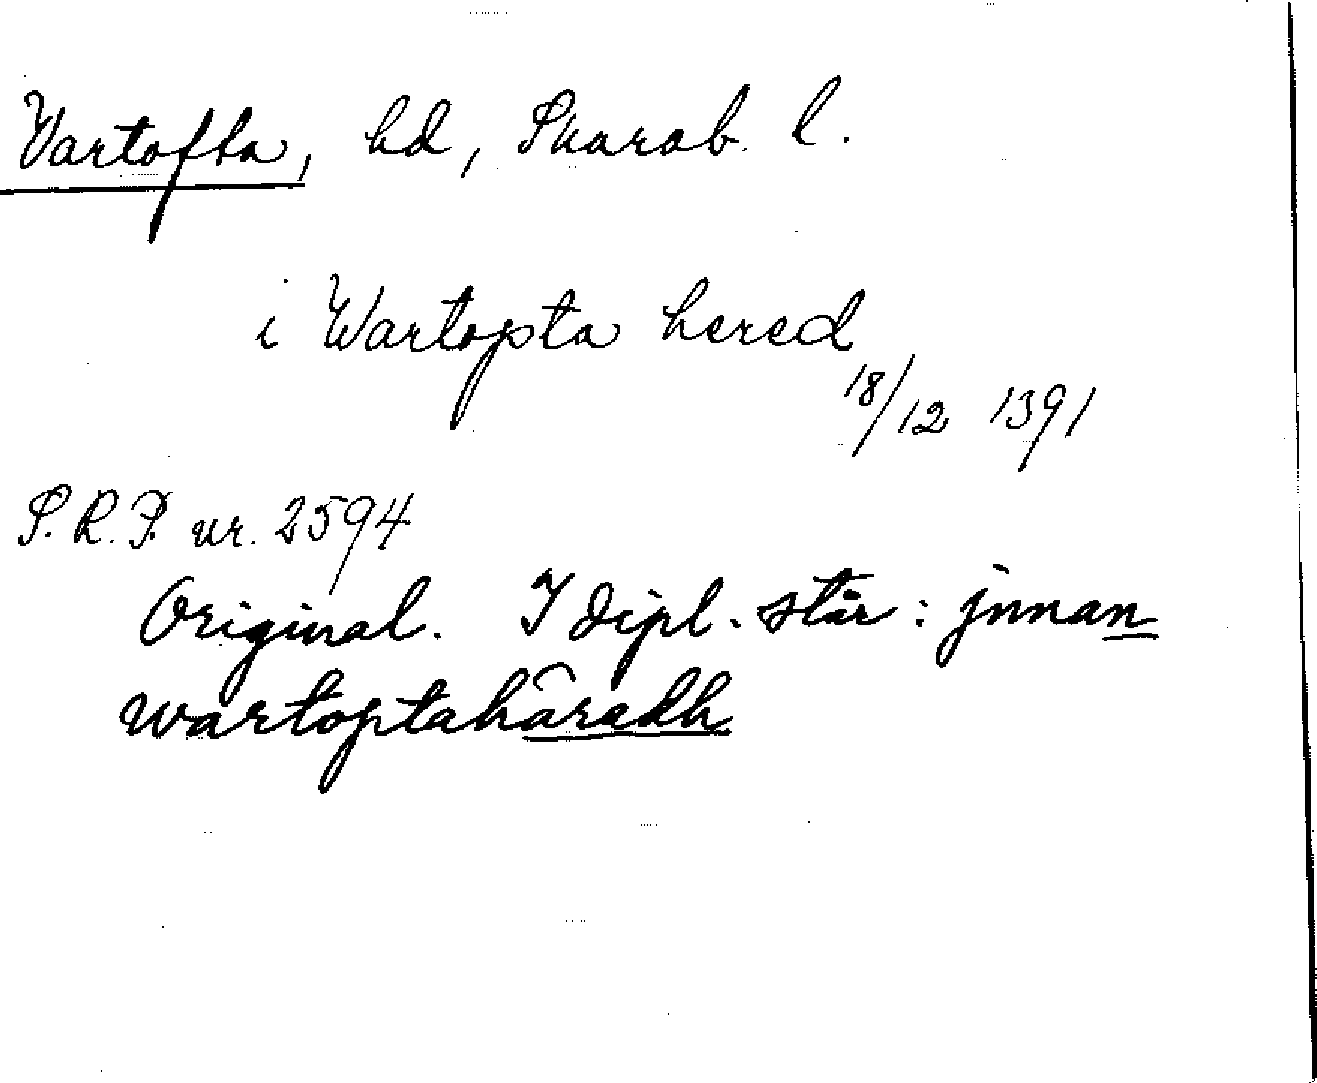 Vartofta, hd, Skarab. l.
i Wartopta hered
18/12 1391
S.R.P. nr. 2594
Original. I dipl. står: jnnan
wartoptahâredh